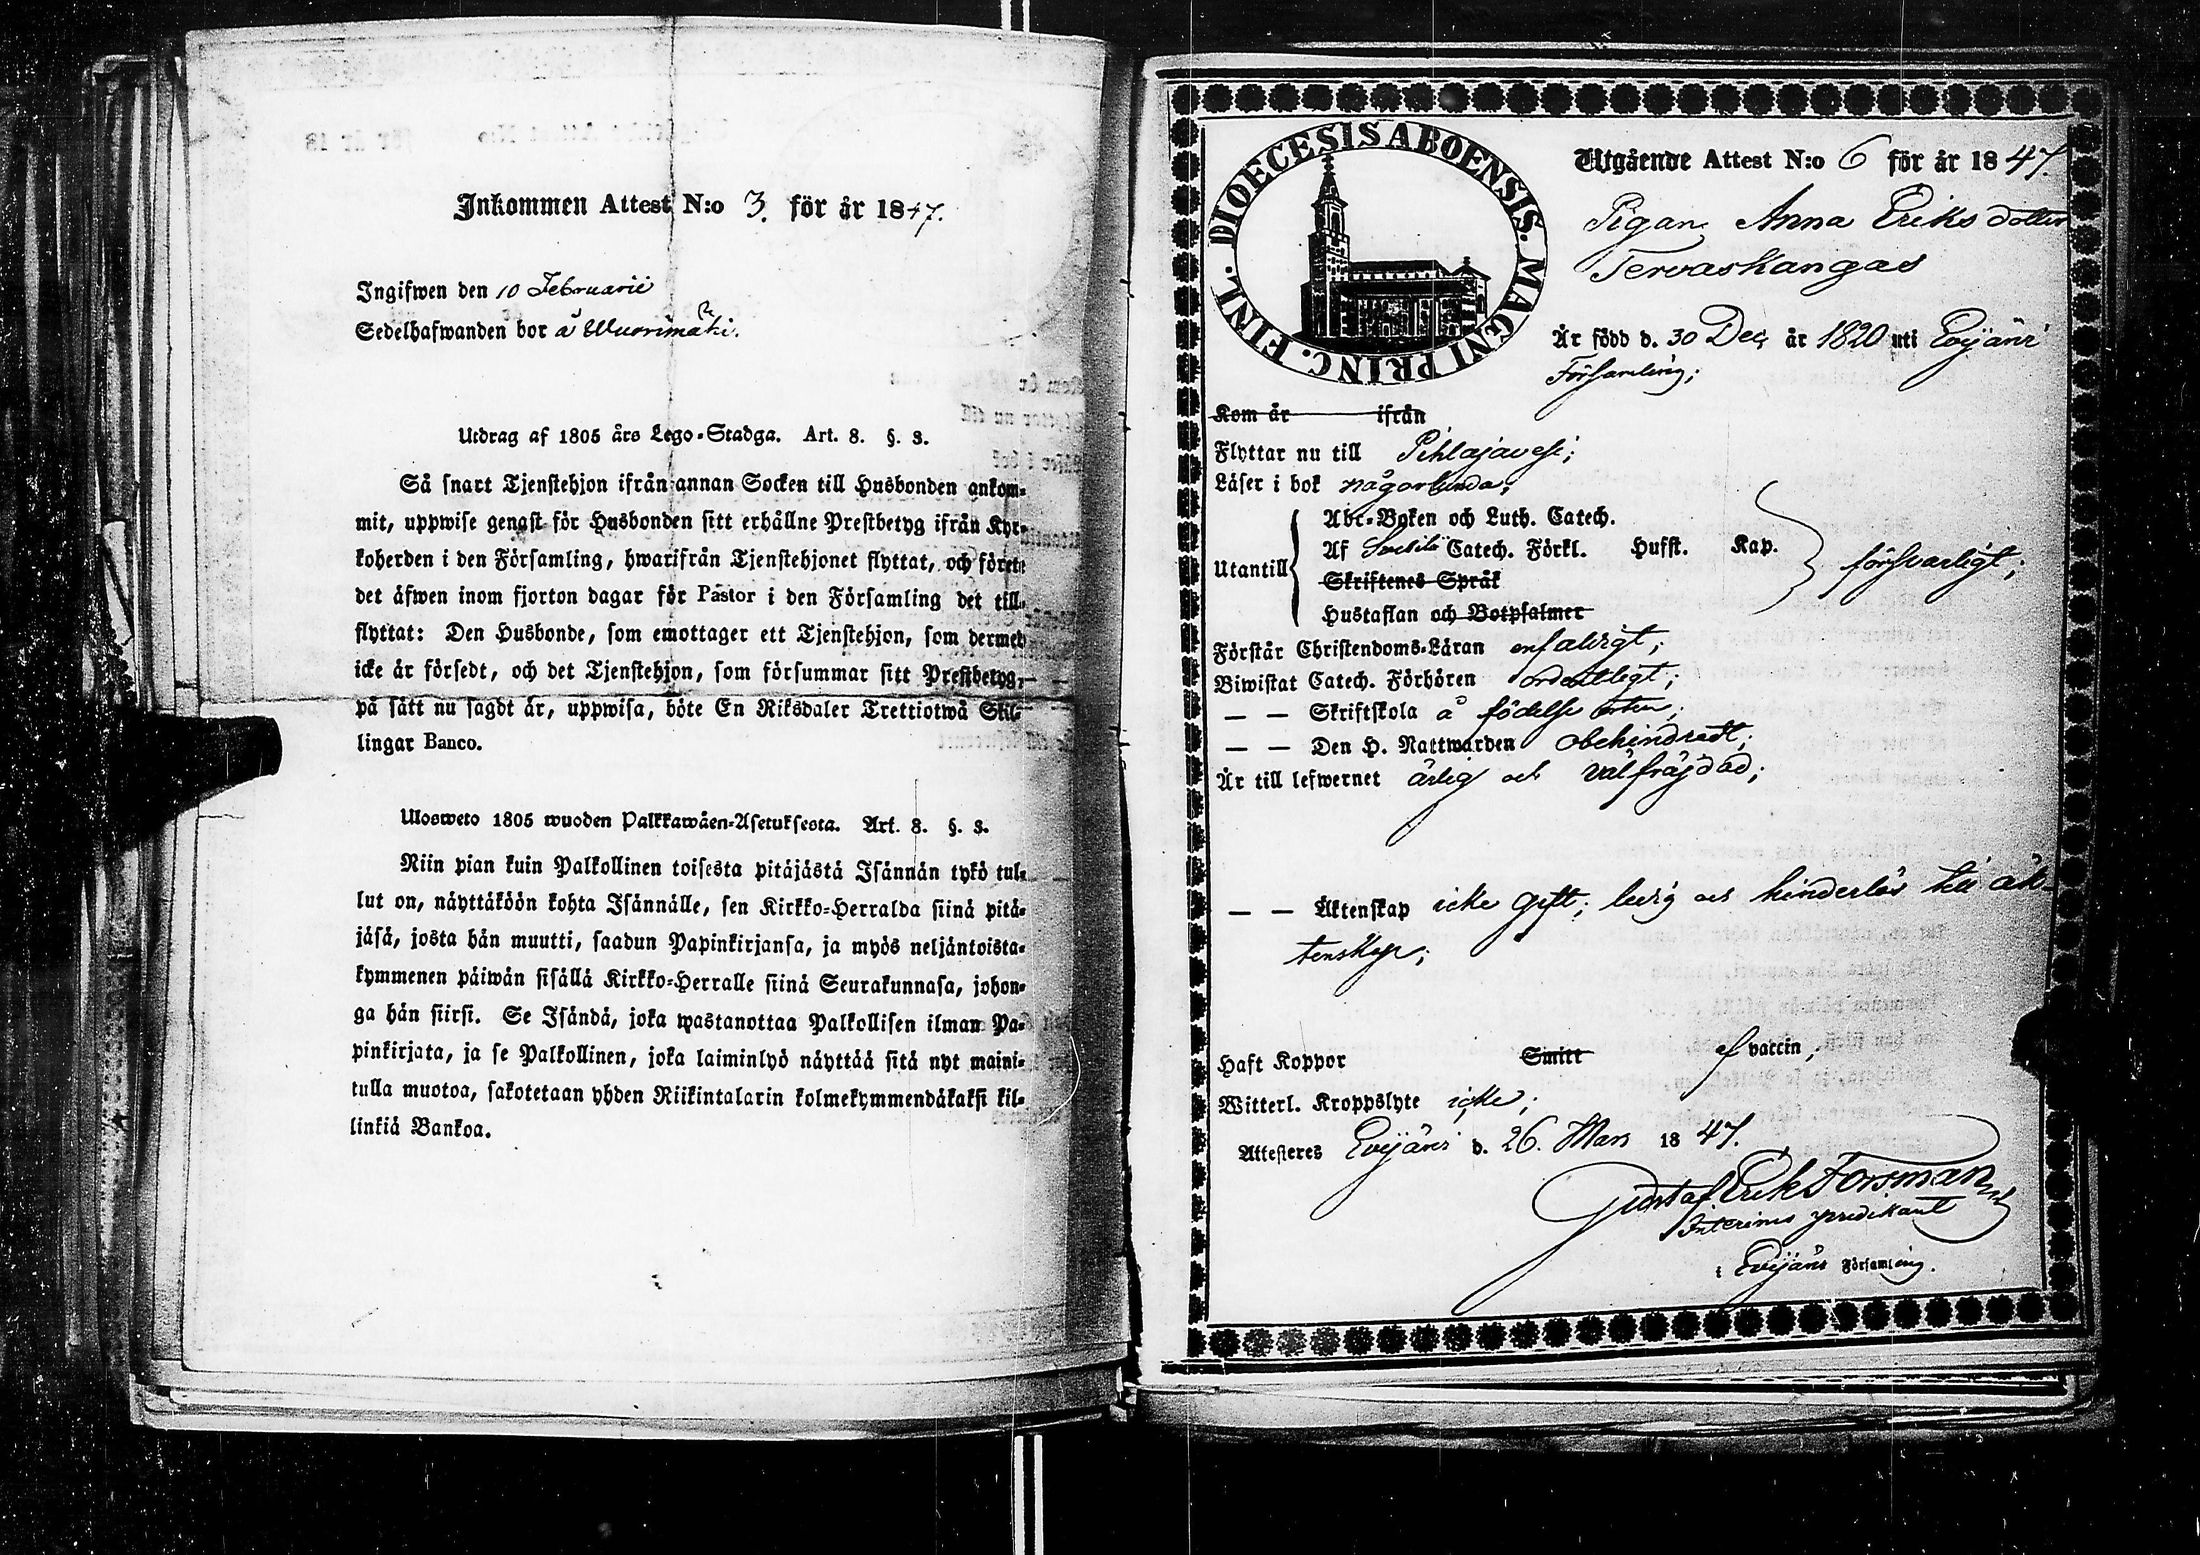 Inkommen Attest N:o 3. för år 1847.
Ingifwen den 10 Februarii
Sedelhafwanden bor å Wuorimäki.
Utdrag af 1805 års Lego-Stadga. Art. 8. §. 3.
Så snart Tjenstehjon ifrån annan Socken till Husbonden ankom-
mit, uppwise genast för Husbonden sitt erhållne Prestbetyg ifrån Kyr-
koherden i den Församling, hwarifrån Tjenstehjonet flyttat, och förete
det äfwen inom fjorton dagar för Pastor i den Församling det till-
flyttat: Den Husbonde, som emottager ett Tjenstehjon, som dermed
icke är försedt, och det Tjenstehjon, som försummar sitt Prestbetyg,
på sätt nu sagdt är, uppwisa, böte En Riksdaler Trettiotwå Skil-
lingar Banco.
Ulosweto 1805 wuoden Palkkawäen-Asetuksesta. Art. 8. §. 3.
Niin pian kuin Palkollinen toisesta pitäjästä Isännän tykö tul-
lut on, näyttäköön kohta Isännälle, sen Kirkko-Herralda siinä pitä-
jäsä, josta hän muutti, saadun Papinkirjansa, ja myös neljäntoista-
kymmenen päiwän sisällä Kirkko-Herralle siinä Seurakunnasa, johon-
ga hän siirsi. Se Isändä, joka wastanottaa Palkollisen ilman Pa-
pinkirjata, ja se Palkollinen, joka laiminlyö näyttää sitä nyt maini-
tulla muotoa, sakotetaan yhden Riikintalarin kolmekymmendäkaksi kil-
linkiä Bankoa.
DIOECESIS ABOENSIS. MAGNI PRINC. FINL.
Utgående Attest N:o 6 för år 1847.
Pigan Anna Eriks dotter
Tervaskangas
Är född d. 30 Dec. år 1820 uti Evijärvi
Församling;
Kom år ifrån
Flyttar nu till Pihlajavesi;
Läser i bok någorlunda;
Utantill
Abc-Boken och Luth. Catech.
Af Svebilii Catech. Förkl. Hufst. Kap. försvarligt;
Skriftenes Språk
Hustaflan och Botpsalmer
Förstår Christendoms-Läran enfaldigt;
Biwistat Catech. Förhören ordentligt;
— — Skriftskola å födelse orten;
— — Den H. Nattwarden obehindradt;
Är till lefwernet ärlig och välfräjdad;
— — Äktenskap icke gift; ledig och hinderlös till äk-
tenskap;
Haft Koppor Smitt af vaccin;
Witterl. Kroppslyte icke;
Attesteres Evijärvi d. 26. Mars 1847.
Gustaf Erik Forsman
Interims predikant
i Evijärvi Församling.